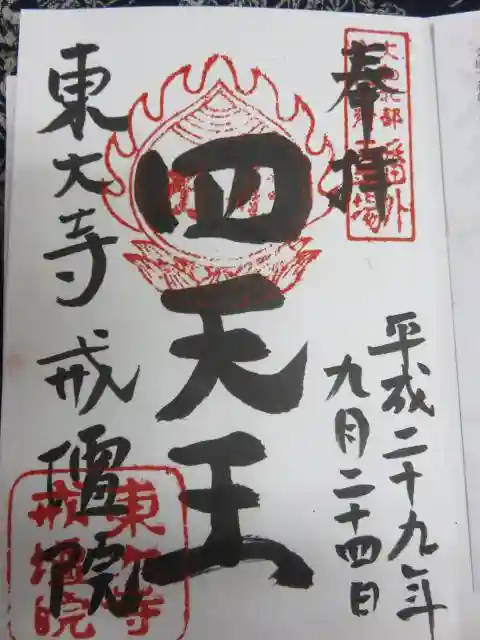 奉拝
平成二十九年
九月二十四日
四天王
東大寺戒壇院
番外
霊場
東大寺
戒壇院